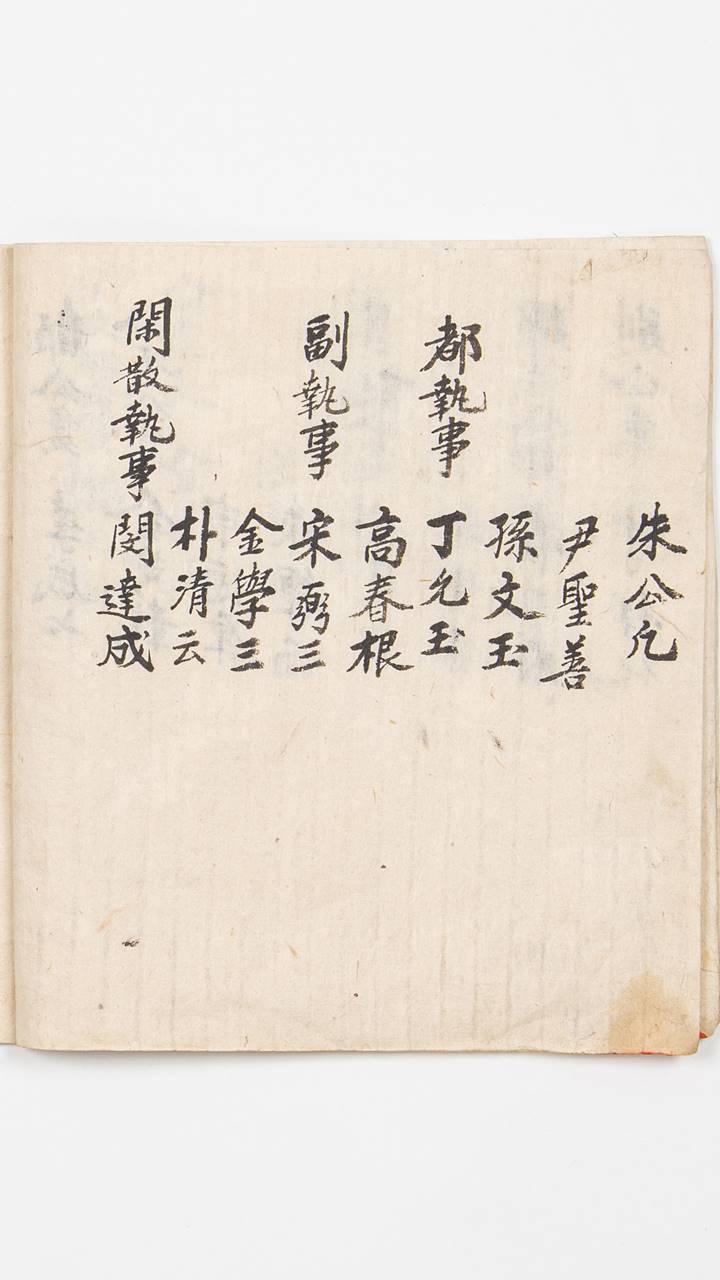 朱公允
尹聖善
孫文玉
都執事 丁允玉
高春根
副執事 宋弼三
金學三
朴清云
閑散執事 閔達成